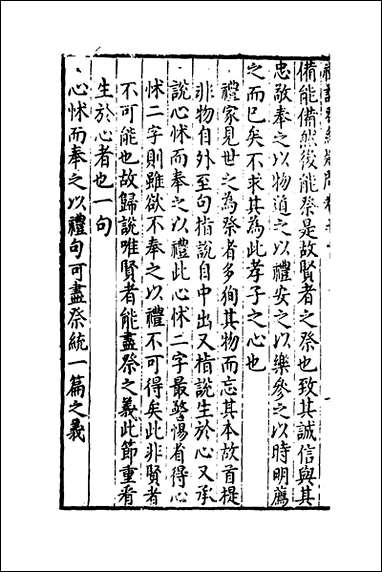 備能備然後能祭是故賢者之祭也致其誠信與其
忠敬奉之以物道之以禮安之以樂參之以時明薦
之而已矣不求其為此孝子之心也
禮家見世之為祭者多狥其物而忘其本故首提
非物自外至句指說自中出又指說生於心又承
說心怵而奉之以禮此心怵二字最警惕看得心
怵二字則雖欲不奉之以禮不可得矣此非賢者
不可能也故歸說唯賢者能盡祭之義此節重看
生於心者也一句
心怵而奉之以禮句可盡祭統一篇之義